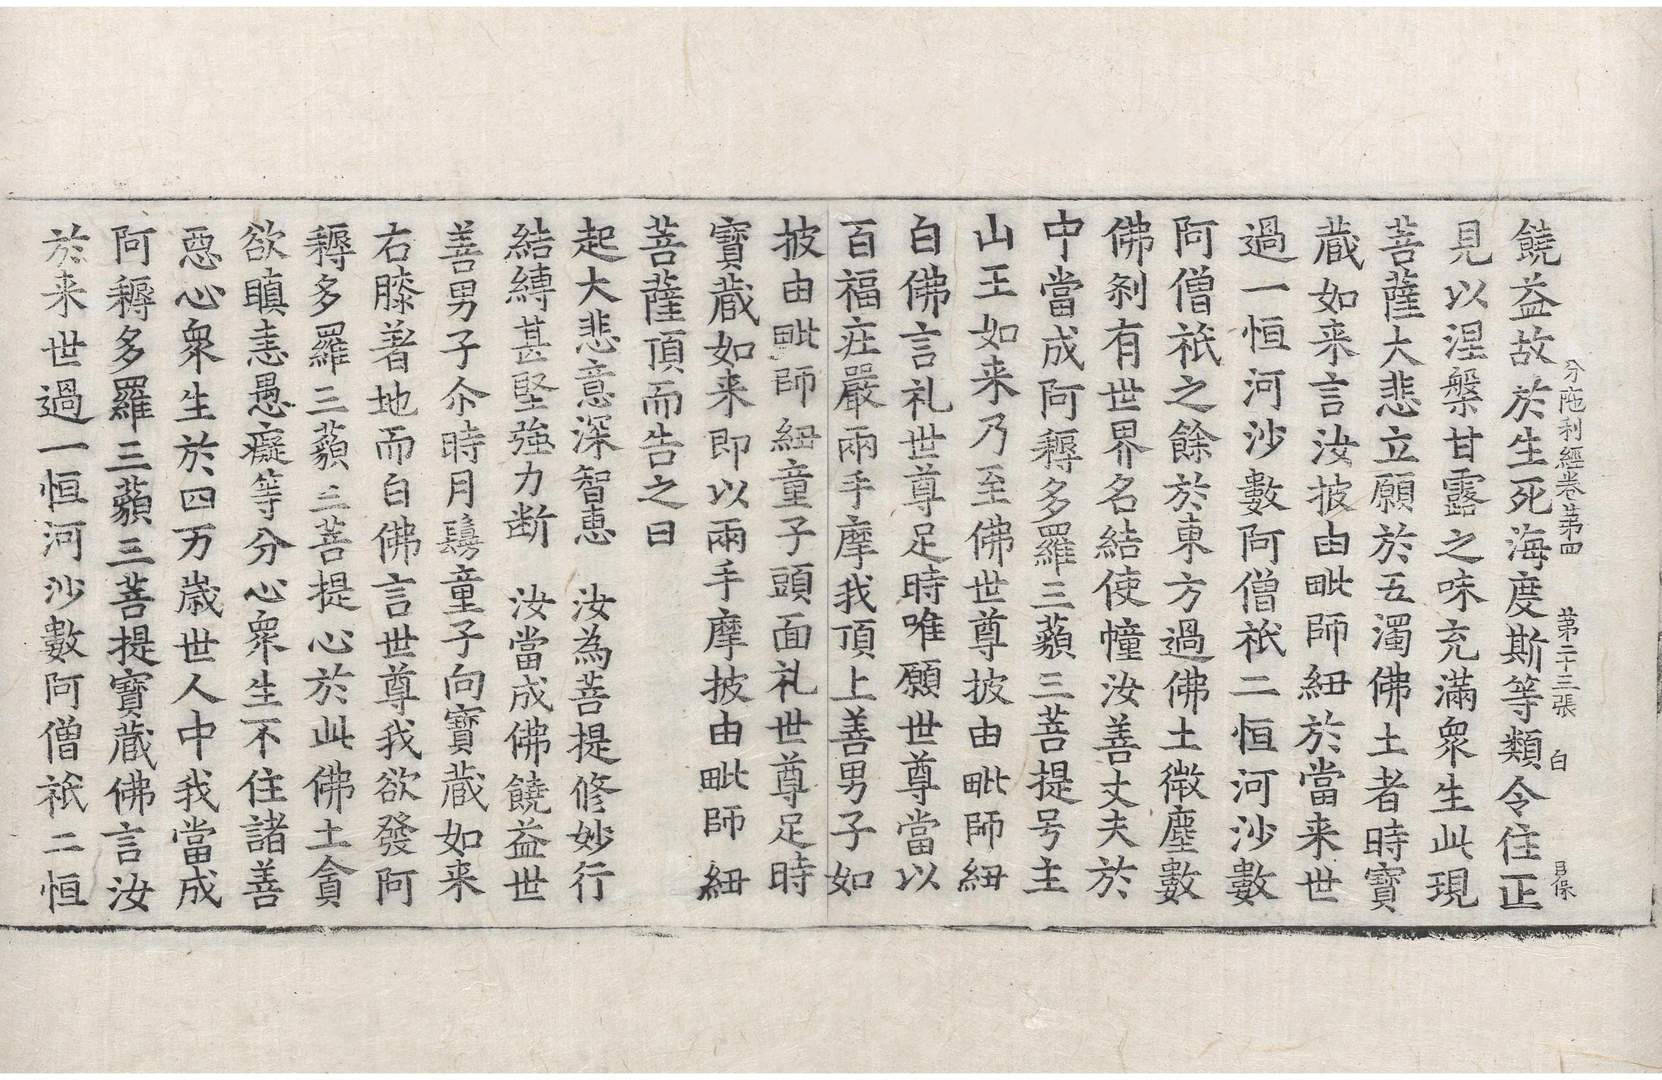 分陁利經卷第四　第二十三張　白　目保
饒益故於生死海度斯等類令住正
見以涅槃甘露之味充滿衆生此現
菩薩大悲立願於五濁佛土者時寶
蔵如来言汝披由毗師紐於當来世
過一恒河沙數阿僧祇二恒河沙數
阿僧祇之餘於東方過佛土微塵數
佛刹有世界名結使幢汝善丈夫於
中當成阿耨多羅三藐三菩提号主
山王如来乃至佛世尊披由毗師紐
白佛言礼世尊足時唯願世尊當以
百福庄嚴兩手摩我頂上善男子如
披由毗師紐童子頭面礼世尊足時
寶蔵如来即以兩手摩披由毗師紐
菩薩頂而告之曰
起大悲意深智恵　汝為菩提修妙行
結縛甚堅強力断　汝當成佛饒益世
善男子尒時月鬘童子向寶蔵如来
右膝著地而白佛言世尊我欲發阿
耨多羅三藐三菩提心於此佛土貪
欲瞋恚愚癡等分心衆生不住諸善
惡心衆生於四万歳世人中我當成
阿耨多羅三藐三菩提寶蔵佛言汝
於来世過一恒河沙數阿僧祇二恒